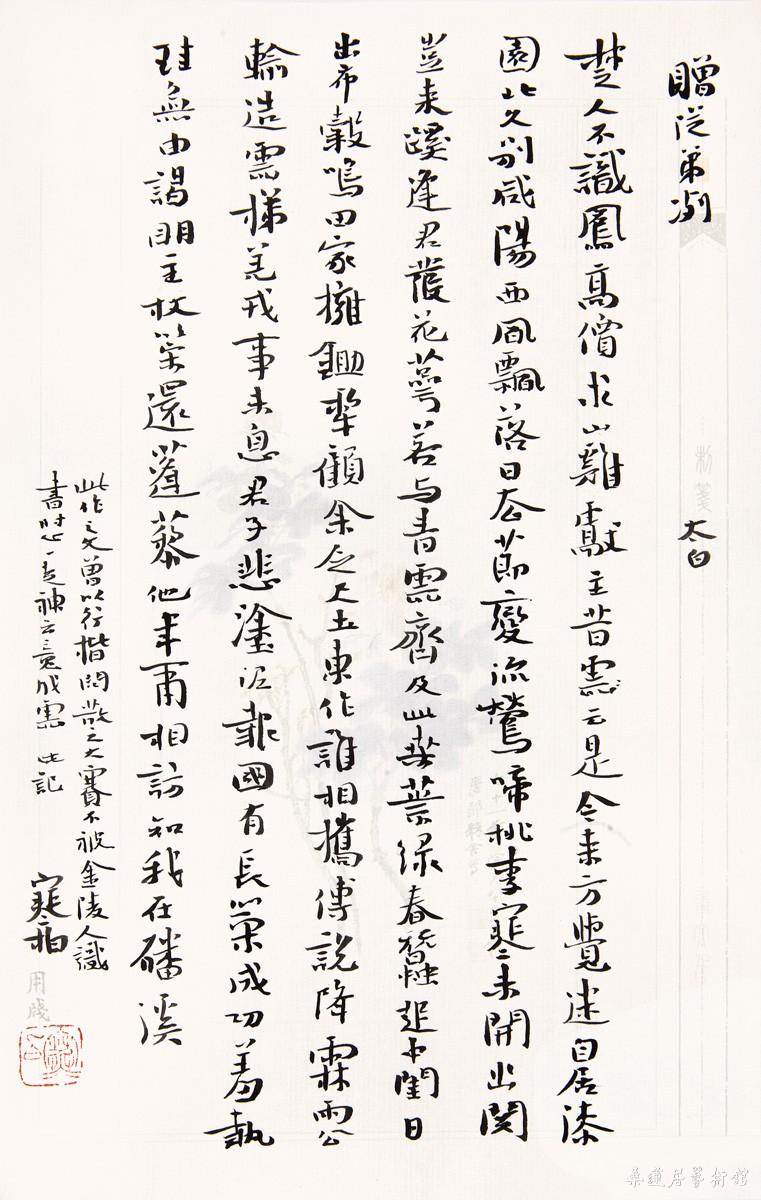 贈從弟冽
太白
楚人不識鳳高價求山雞獻主昔雲云是今来方覺迷自居漆
園北久別咸陽西風飄落日去節變流鶯啼桃李寒未開出関
豈来蹊逢君發花萼若与青雲齊及此桑葉緑春蠶起中閨日
出布穀鳴田家擁鋤犂顧余乏尺土東作誰相攜傅說降霖雨公
輸造雲梯羌戎事未息君子悲塗泥報國有長策成功羞執
珪無由謁明主杖策還蓬藜他年爾相訪知我在磻溪
此作之文曾以行楷閒散之大賽不被金陵人識
書時心一走神云竟成雲 此記
寒柏
用牋
桑蓮居藝術館